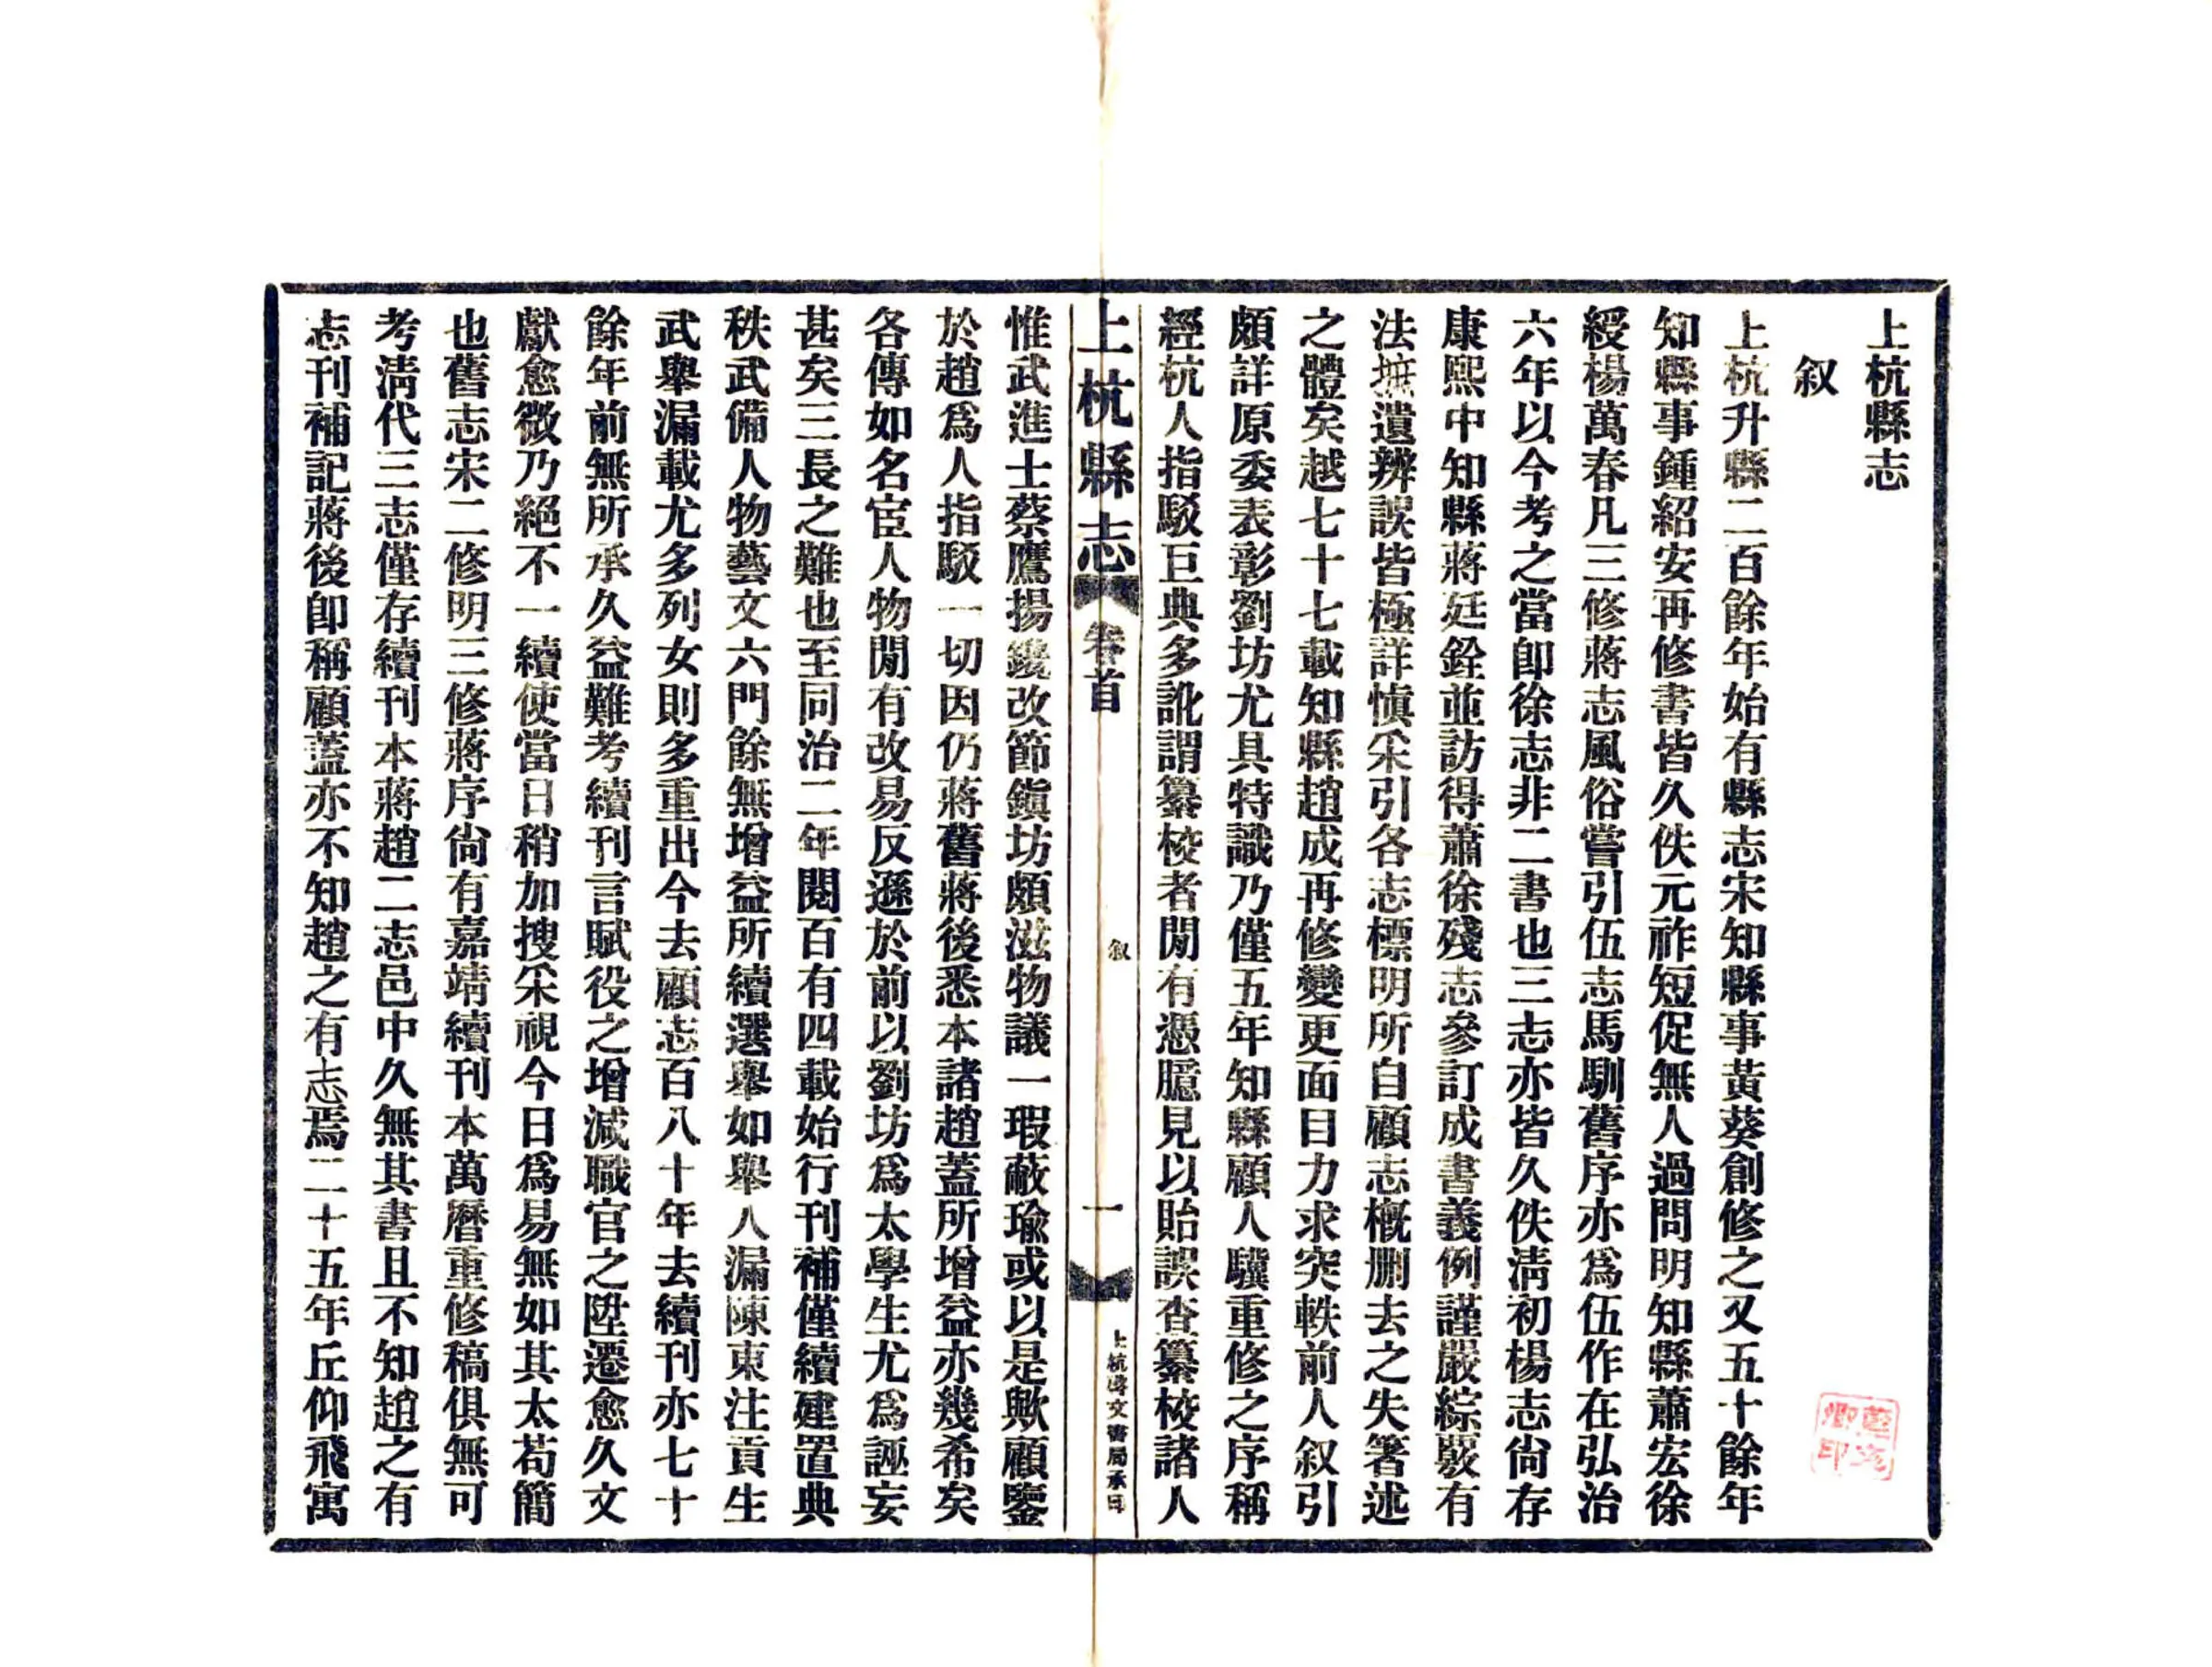 上杭縣志
叙
上杭升縣二百餘年始有縣志宋知縣事黃葵創修之又五十餘年
知縣事鍾紹安再修書皆久佚元祚短促無人過問明知縣蕭宏徐
綬楊萬春凡三修蔣志風俗嘗引伍志馬馴舊序亦爲伍作在弘治
六年以今考之當卽徐志非二書也三志亦皆久佚淸初楊志尙存
康熙中知縣蔣廷銓並訪得蕭徐殘志參訂成書義例謹嚴綜覈有
法摭遺辨誤皆極詳愼采引各志標明所自顧志槪删去之失箸述
之體矣越七十七載知縣趙成再修變更面目力求突軼前人叙引
頗詳原委表彰劉坊尤具特識乃僅五年知縣顧人驥重修之序稱
經杭人指駁巨典多訛謂纂校者閒有憑臆見以貽誤查纂校諸人
上杭縣志
卷首
叙
一
上杭 文書局承印
惟武進士蔡鷹揚纔改節鎭坊頗滋物議一瑕蔽瑜或以是歟顧鑒
於趙爲人指駁一切因仍蔣舊蔣後悉本諸趙蓋所增益亦幾希矣
各傳如名宦人物閒有改易反遜於前以劉坊爲太學生尤爲誣妄
甚矣三長之難也至同治二年閱百有四載始行刊補僅續建置典
秩武備人物藝文六門餘無增益所續選舉如舉人漏陳東注貢生
武舉漏載尤多列女則多重出今去顧志百八十年去續刊亦七十
餘年前無所承久益難考續刊言賦役之增減職官之陞遷愈久文
獻愈微乃絕不一續使當日稍加搜采視今日爲易無如其太苟簡
也舊志宋二修明三修蔣序尙有嘉靖續刊本萬曆重修稿俱無可
考淸代三志僅存續刊本蔣趙二志邑中久無其書且不知趙之有
志刊補記蔣後卽稱顧蓋亦不知趙之有志焉二十五年丘仰飛寓